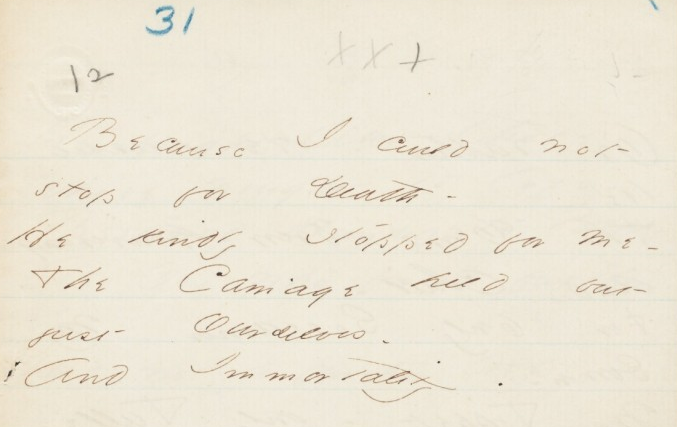 31
x x x
12
Because I could not
stop for Death -
He kindly stopped for me -
The Carriage held but
just Ourselves -
And Immortality .